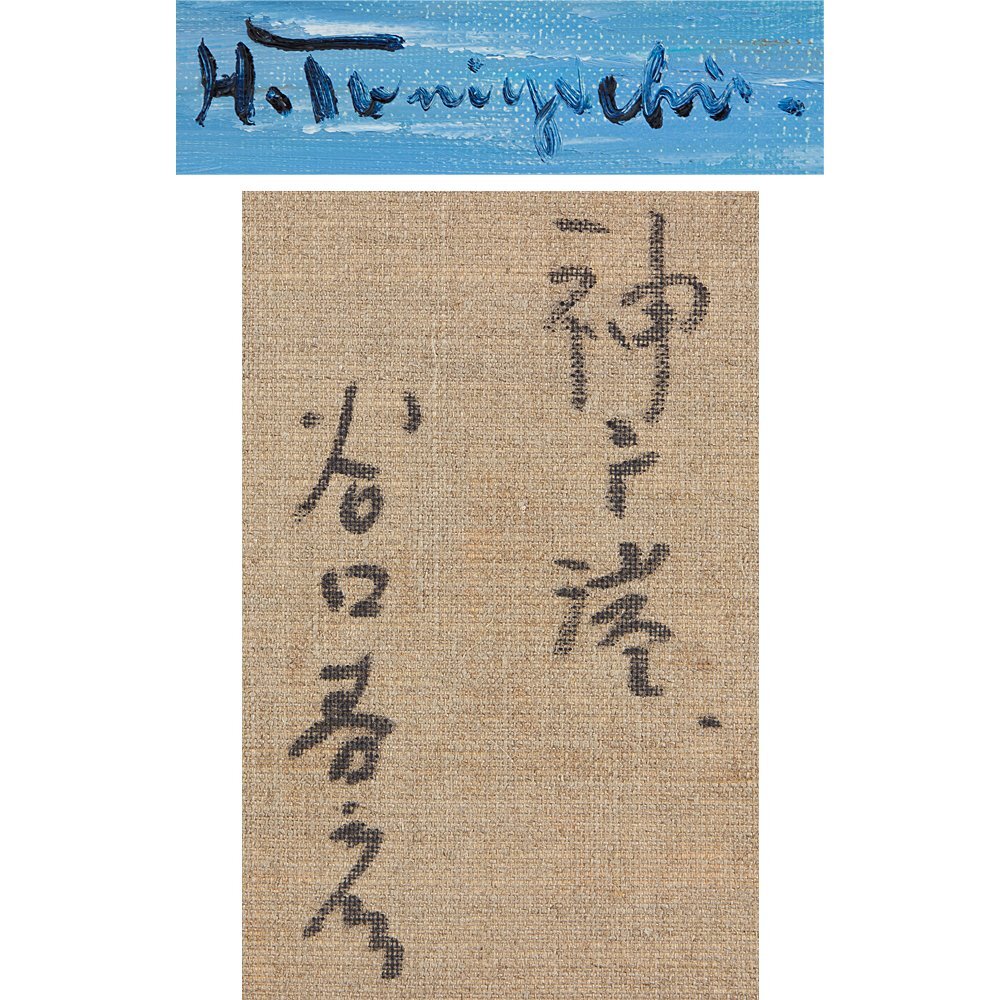 H. Taniguchi.
神戸港.
谷口春彦